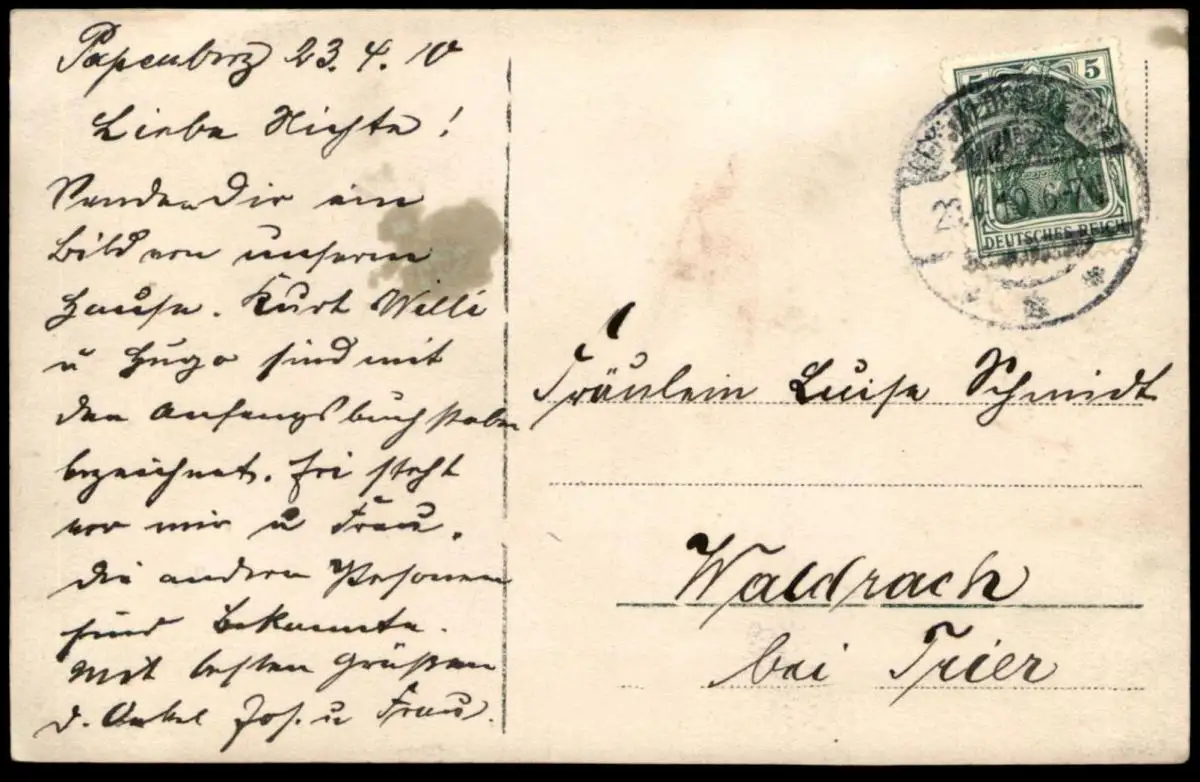 Papenburg 23.4.10
Liebe Nichte!
Sende Dir ein
Bild von unserem
Hause. Kurt Willi
u Hugo sind mit
den Anfangsbuchstaben
bezeichnet. Sie steht
vor mir u Frau.
die andern Personen
sind Bekannte.
Mit besten Grüßen
d. Onkel Jos. u Frau.
5
DEUTSCHES REICH
Fräulein Luise Schmidt
Waldrach
bei Trier